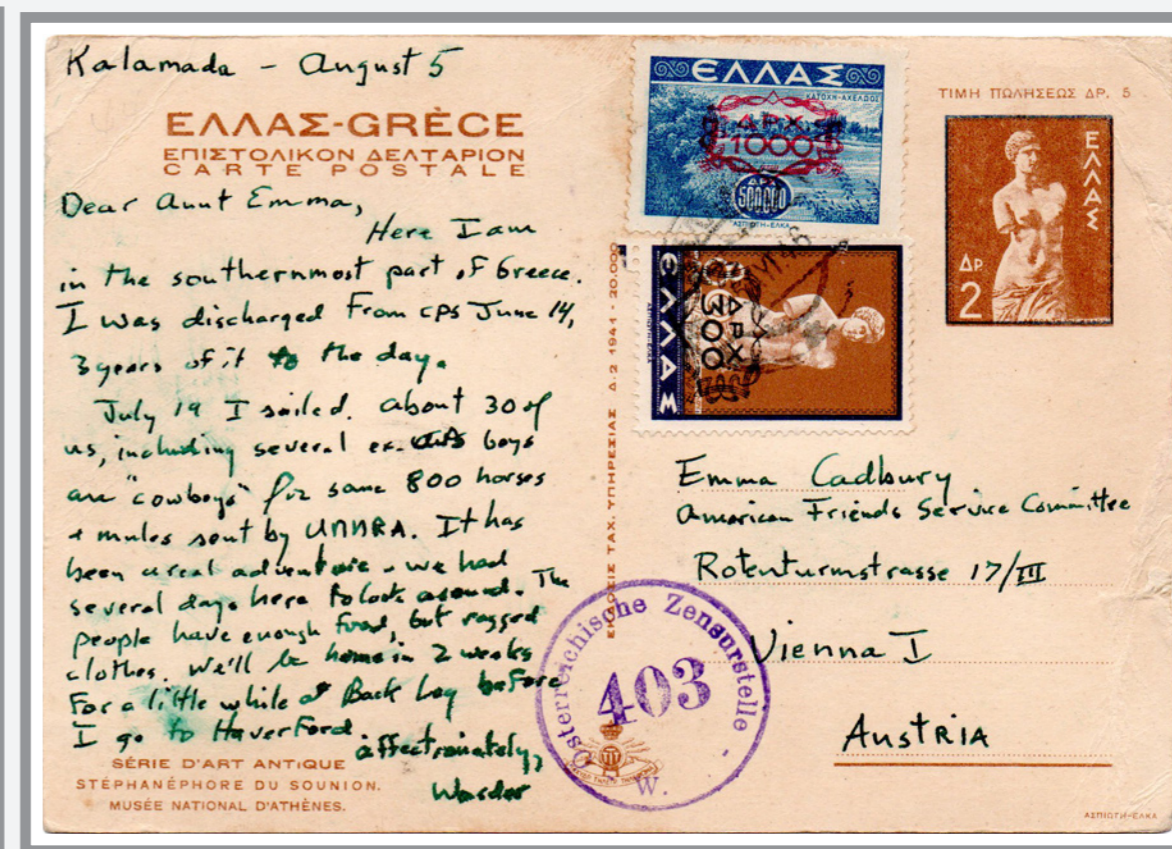 Kalamada - August 5
ΕΛΛΑΣ-GRÈCE
ΕΠΙΣΤΟΛΙΚΟΝ ΔΕΛΤΑΡΙΟΝ
CARTE POSTALE
Dear Aunt Emma,
Here I am
in the southernmost part of Greece.
I was discharged from CPS June 14,
3 years of it to the day.
July 19 I sailed. About 30 of
us, including several ex- boys
are "cowboys" for some 800 horses
+ mules sent by UNRRA. It has
been a real adventure. We had
several days here to look around. The
people have enough food, but ragged
clothes. We'll be home in 2 weeks
For a little while at Back Log before
I go to Haverford.
affectionately,
Warder
SÉRIE D'ART ANTIQUE
STÉPHANÉPHORE DU SOUNION.
MUSÉE NATIONAL D'ATHÈNES.
ΕΛΛΑΣ
ΚΑΤΟΧΗ-ΑΧΕΛΩΟΣ
ΔΡΧ.
1000
ΔΡ.
500,000
ΑΣΠΙΩΤΗ-ΕΛΚΑ
ΕΛΛΑΣ
ΔΡΧ
300
ΤΙΜΗ ΠΩΛΗΣΕΩΣ ΔΡ. 5
ΕΛΛΑΣ
ΔΡ
2
ΕΚΔΟΣΙΣ ΤΑΧ. ΥΠΗΡΕΣΙΑΣ Δ.2 1941 - 20.000
Emma Cadbury
American Friends Service Committee
Rotenturmstrasse 17/III
Vienna I
Austria
Österreichische Zensurstelle -
403
W.
ΑΣΠΙΩΤΗ-ΕΛΚΑ